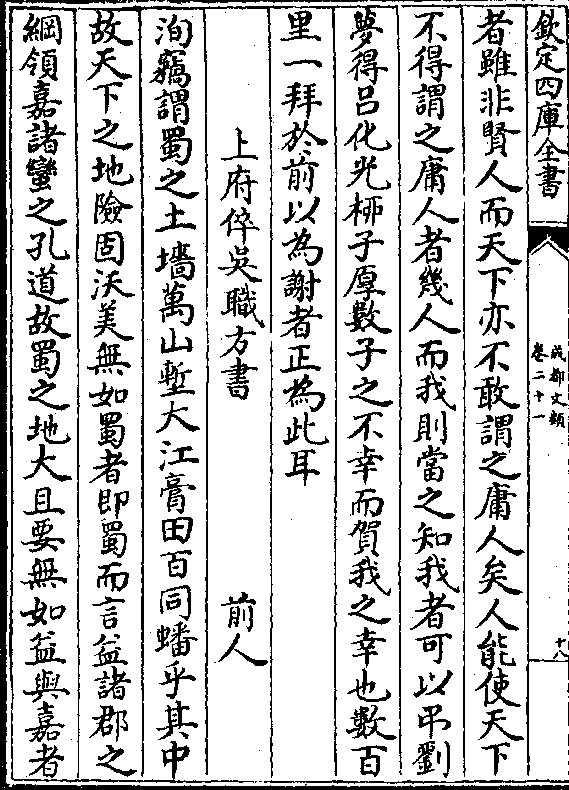 欽定四庫全書
成都文類
卷二十一
十八
者雖非賢人而天下亦不敢謂之庸人矣人能使天下
不得謂之庸人者幾人而我則當之知我者可以弔劉
夢得呂化光栁子厚數子之不幸而賀我之幸也數百
里一拜於前以為謝者正為此耳
上府倅吳職方書 前人
洵竊謂蜀之土墻萬山塹大江膏田百同蟠乎其中
故天下之地險固沃美無如蜀者即蜀而言益諸郡之
綱領嘉諸蠻之孔道故蜀之地大且要無如益與嘉者